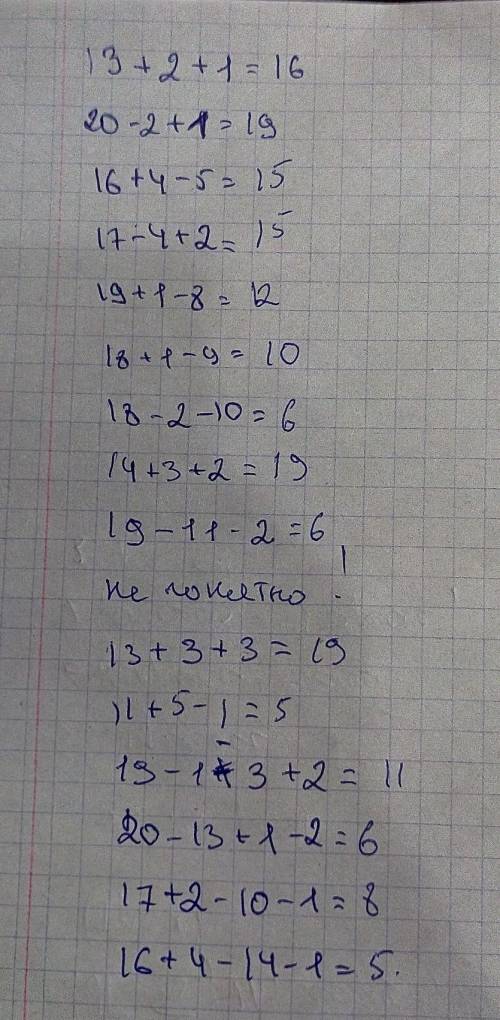 13 + 2 + 1 = 16
20 - 2 + 1 = 19
16 + 4 - 5 = 15
17 - 4 + 2 = 15
19 + 1 - 8 = 12
18 + 1 - 9 = 10
18 - 2 - 10 = 6
14 + 3 + 2 = 19
19 - 11 - 2 = 6
не понятно !
13 + 3 + 3 = 19
11 + 5 - 1 = 5
19 - 1 - 3 + 2 = 11
20 - 13 + 1 - 2 = 6
17 + 2 - 10 - 1 = 8
16 + 4 - 14 - 1 = 5.